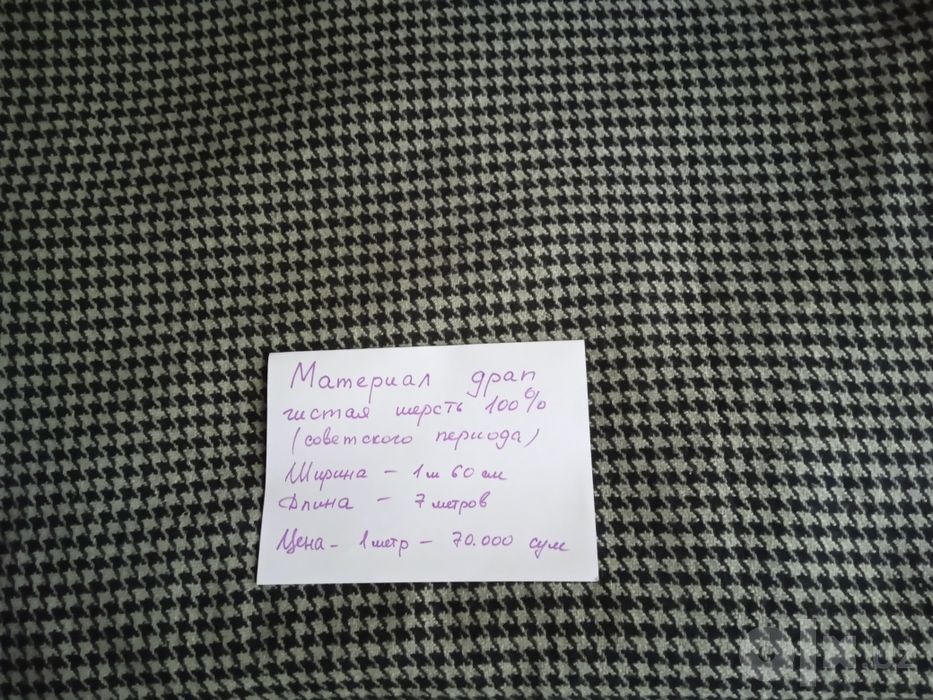 Материал драп
чистая шерсть 100%
(советского периода)
Ширина - 1м 60 см
Длина - 7 метров
Цена - 1 метр - 70.000 сум
olx.uz